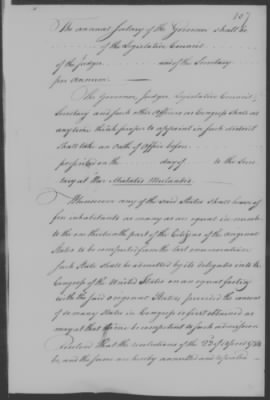 157
The annual salary of the Governor shall be
of the Legislative Council
of the Judges and of the Secretary
per annum.
The Governor, Judges, Legislative Council,
Secretary and such other Officers as Congress shall at
any time think proper to appoint in such district
shall take an Oath of Office before
prescribed on the day of to the Secre
tary at War Mutatis Mutandis.
Whensoever any of the said States shall have of
free inhabitants as many as are equal in num
to the one thirteenth part of the Citizens of the original
States to be computed from the last enumeration
such State shall be admitted by its delegates into the
Congress of the United States on an equal footing
with the said original States; provided the consent
of so many States in Congress is first obtained as
may at that time be competent to such admission
Resolved That the resolutions of the 23d of April 1784
be, and the same are hereby annulled and repealed